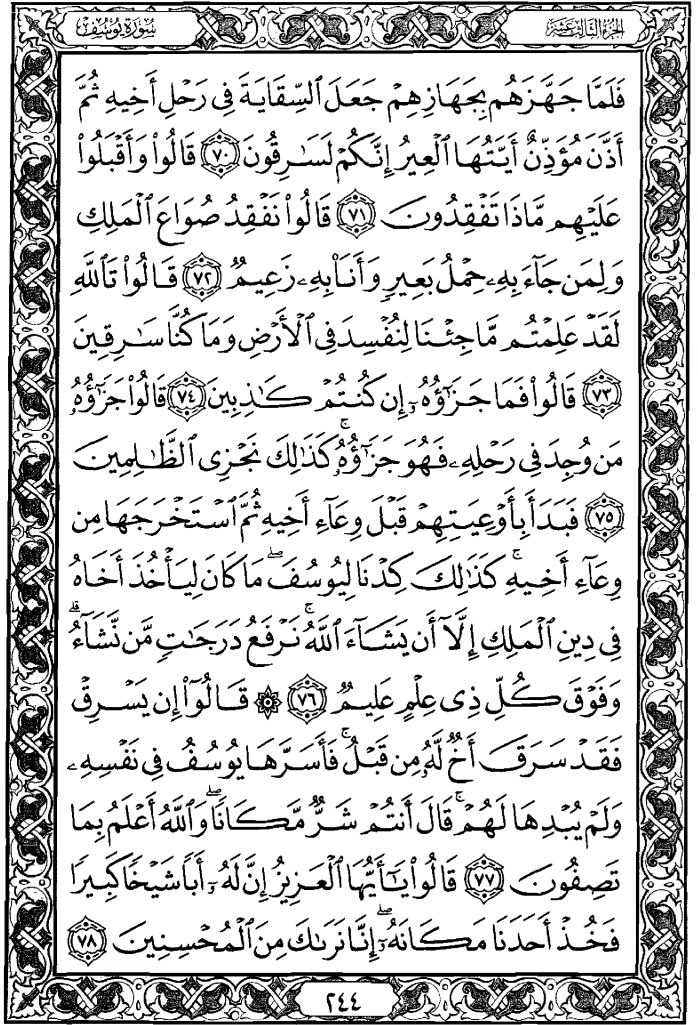 سُورَةُ يُوسُفَ
الجزء الثالث عشر
فَلَمَّا جَهَّزَهُم بِجَهَازِهِمْ جَعَلَ ٱلسِّقَايَةَ فِى رَحْلِ أَخِيهِ ثُمَّ
أَذَّنَ مُؤَذِّنٌ أَيَّتُهَا ٱلْعِيرُ إِنَّكُمْ لَسَٰرِقُونَ ﴿٧٠﴾ قَالُوا۟ وَأَقْبَلُوا۟
عَلَيْهِم مَّاذَا تَفْقِدُونَ ﴿٧١﴾ قَالُوا۟ نَفْقِدُ صُوَاعَ ٱلْمَلِكِ
وَلِمَن جَآءَ بِهِۦ حِمْلُ بَعِيرٍ وَأَنَا۠ بِهِۦ زَعِيمٌ ﴿٧٢﴾ قَالُوا۟ تَٱللَّهِ
لَقَدْ عَلِمْتُم مَّا جِئْنَا لِنُفْسِدَ فِى ٱلْأَرْضِ وَمَا كُنَّا سَٰرِقِينَ
﴿٧٣﴾ قَالُوا۟ فَمَا جَزَٰٓؤُهُۥٓ إِن كُنتُمْ كَٰذِبِينَ ﴿٧٤﴾ قَالُوا۟ جَزَٰٓؤُهُۥ
مَن وُجِدَ فِى رَحْلِهِۦ فَهُوَ جَزَٰٓؤُهُۥ ۚ كَذَٰلِكَ نَجْزِى ٱلظَّٰلِمِينَ
﴿٧٥﴾ فَبَدَأَ بِأَوْعِيَتِهِمْ قَبْلَ وِعَآءِ أَخِيهِ ثُمَّ ٱسْتَخْرَجَهَا مِن
وِعَآءِ أَخِيهِ ۚ كَذَٰلِكَ كِدْنَا لِيُوسُفَ ۖ مَا كَانَ لِيَأْخُذَ أَخَاهُ
فِى دِينِ ٱلْمَلِكِ إِلَّآ أَن يَشَآءَ ٱللَّهُ ۚ نَرْفَعُ دَرَجَٰتٍ مَّن نَّشَآءُ ۗ
وَفَوْقَ كُلِّ ذِى عِلْمٍ عَلِيمٌ ﴿٧٦﴾ ۞ قَالُوٓا۟ إِن يَسْرِقْ
فَقَدْ سَرَقَ أَخٌ لَّهُۥ مِن قَبْلُ ۚ فَأَسَرَّهَا يُوسُفُ فِى نَفْسِهِۦ
وَلَمْ يُبْدِهَا لَهُمْ ۚ قَالَ أَنتُمْ شَرٌّ مَّكَانًا ۖ وَٱللَّهُ أَعْلَمُ بِمَا
تَصِفُونَ ﴿٧٧﴾ قَالُوا۟ يَٰٓأَيُّهَا ٱلْعَزِيزُ إِنَّ لَهُۥٓ أَبًا شَيْخًا كَبِيرًا
فَخُذْ أَحَدَنَا مَكَانَهُۥٓ ۖ إِنَّا نَرَىٰكَ مِنَ ٱلْمُحْسِنِينَ ﴿٧٨﴾
٢٤٤